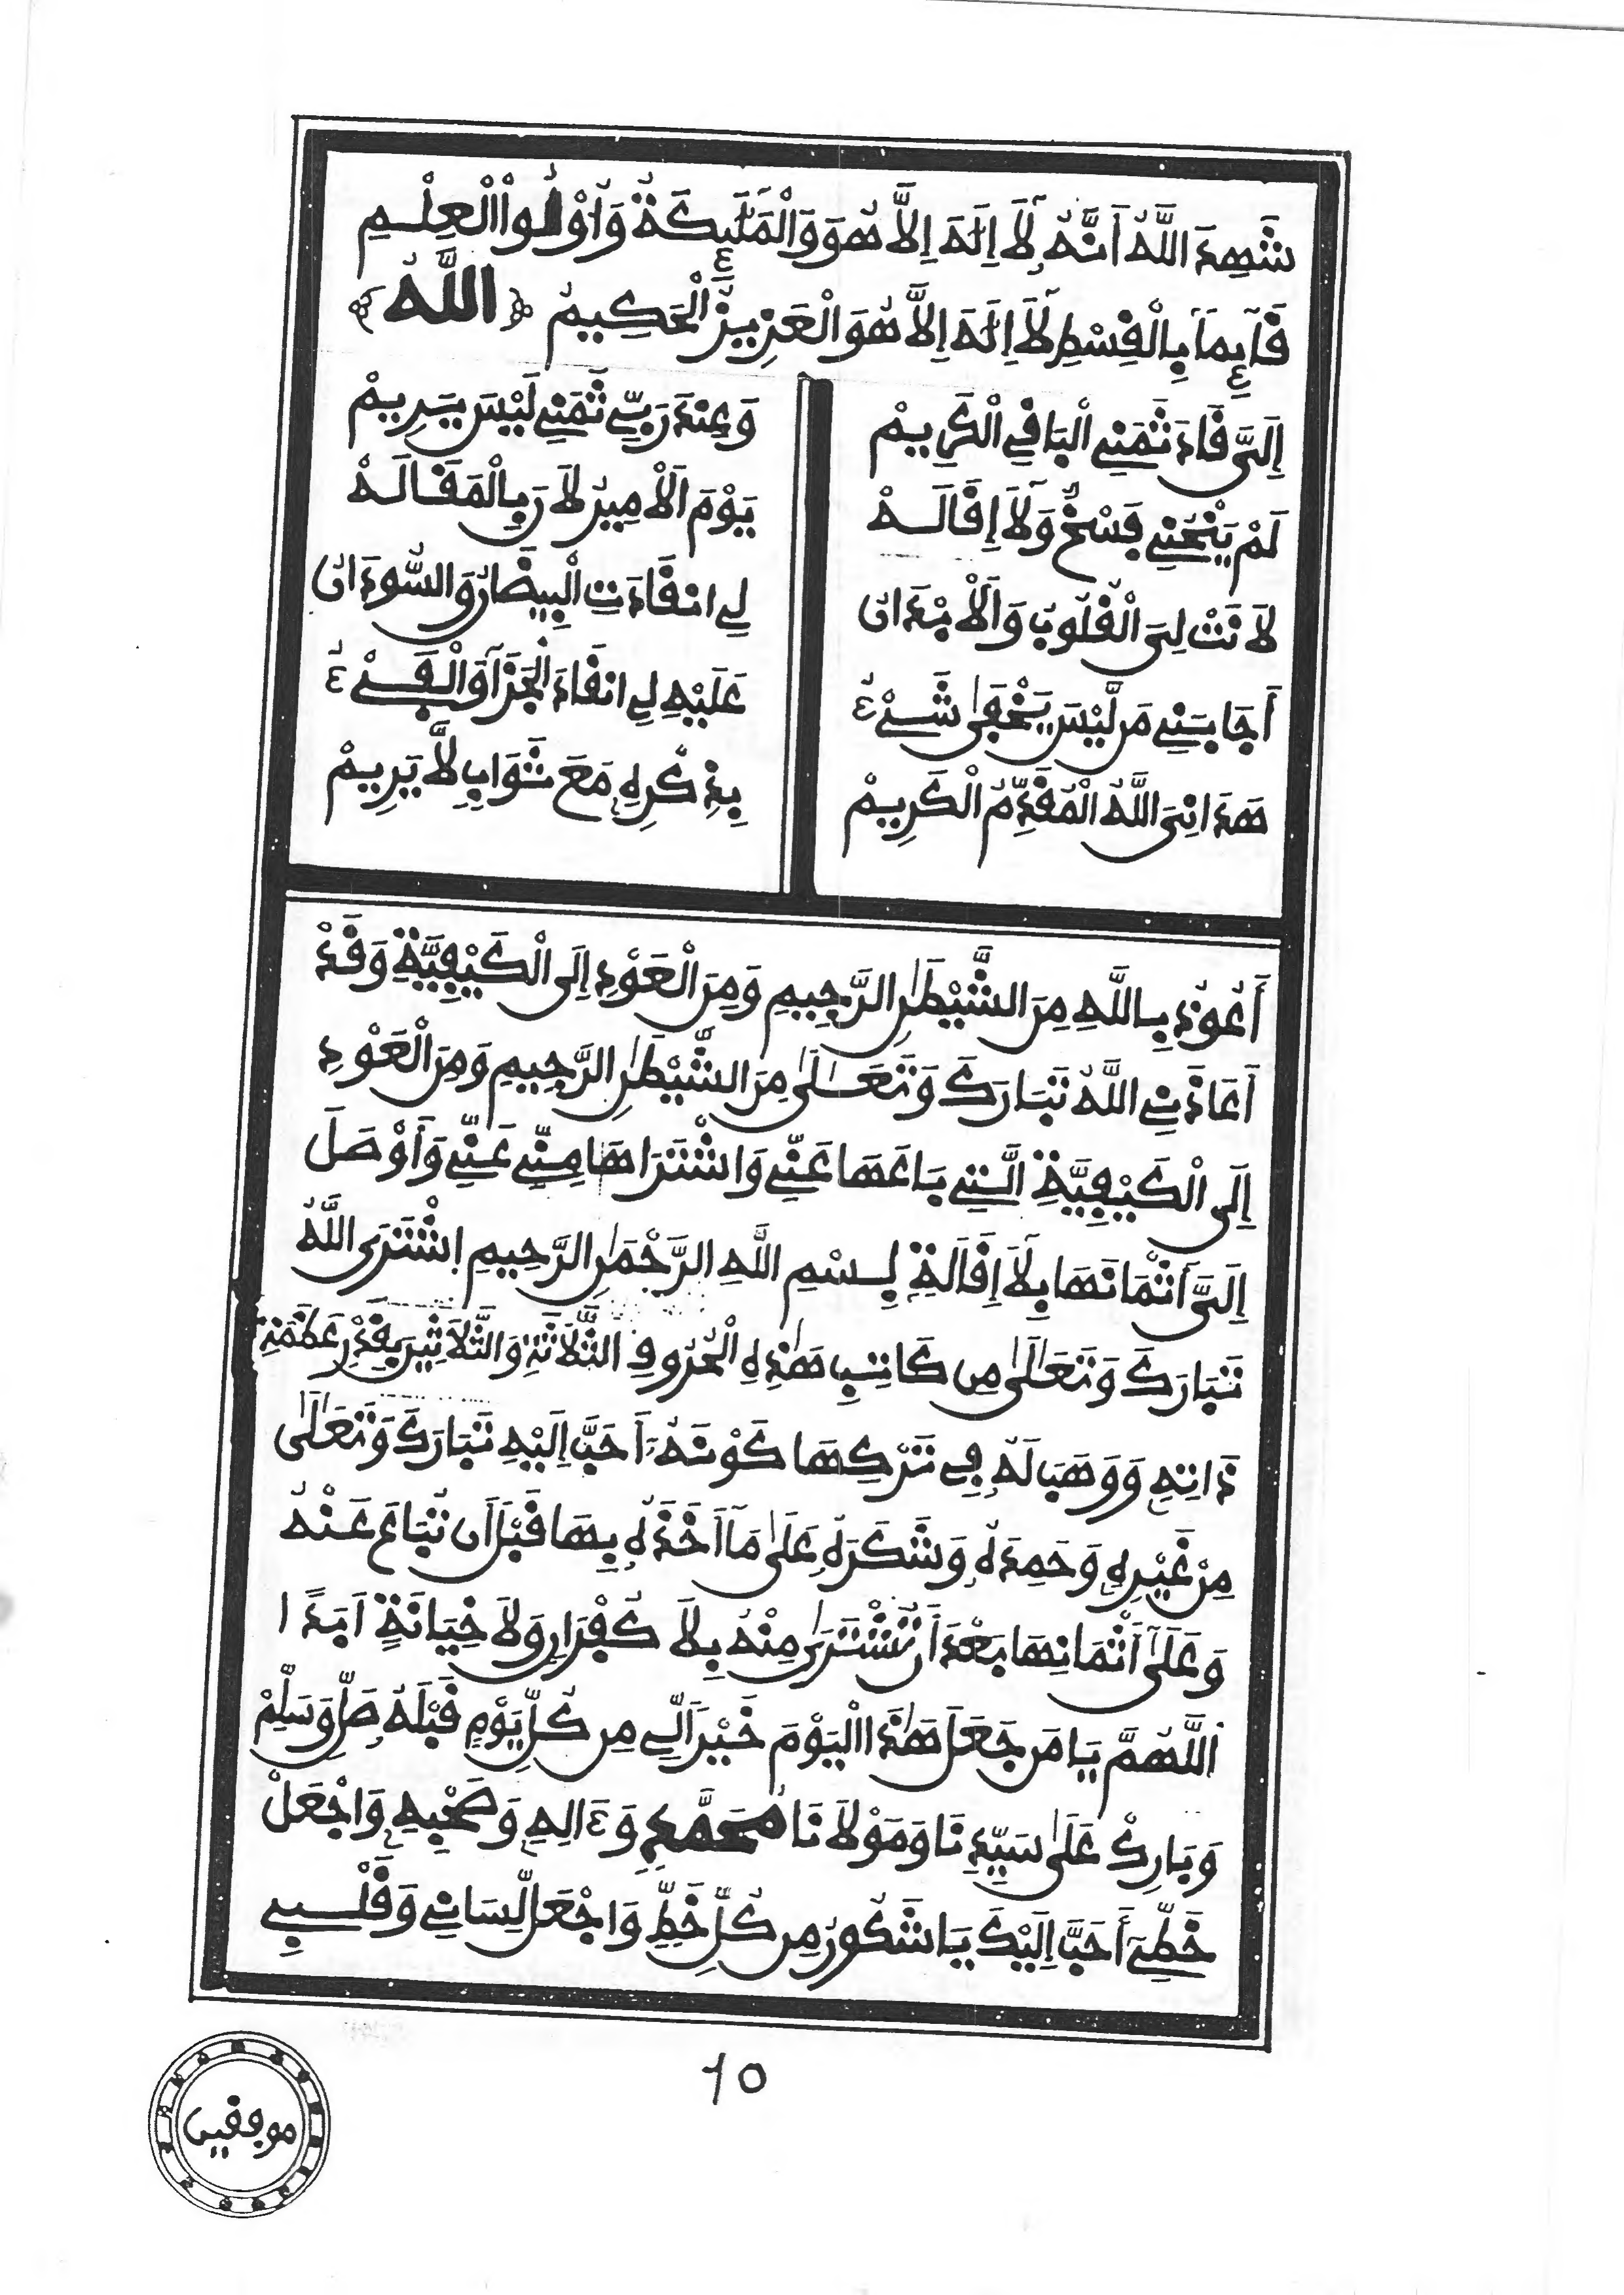 شَهِدَ اللَّهُ أَنَّهُ لَا إِلَهَ إِلَّا هُوَ وَالْمَلَئِكَةُ وَأُوْلُواْ الْعِلْمِ
قَآئِمًا بِالْقِسْطِ لَا إِلَهَ إِلَّا هُوَ الْعَزِيزُ الْحَكِيمُ ﴿اللَّهُ﴾
إِلَىَّ قَادَ ثَمَنِي الْبَاقِي الْكَرِيمْ وَعِنْدَ رَبِّي ثَمَنِي لَيْسَ يَرِيمْ
لَمْ يَنْحُنِي فَسْخٌ وَلَا إِقَالَهْ يَوْمَ الْأَمِينُ لَا رَبِالْمَقَالَهْ
لَانَتْ لِيَ الْقُلُوبُ وَالْأَبْدَانُ لِي انْقَادَتِ الْبِيضَانُ وَالسُّودَانُ
أَجَابَنِي مَن لَّيْسَ يَخْفَى شَيْءُ عَلَيْهِ لِي انْقَادَ الْجَزَا وَالْفَيْءُ
هَدَانِيَ اللَّهُ الْمُقَدِّمُ الْكَرِيمْ بِذِكْرِهِ مَعَ ثَوَابٍ لَّا يَرِيمْ
أَعُوذُ بِاللَّهِ مِنَ الشَّيْطَنِ الرَّجِيمِ وَمِنَ الْعَوْدِ إِلَى الْكَيْفِيَّةِ وَقَدْ
أَعَاذَنِي اللَّهُ تَبَارَكَ وَتَعَلَى مِنَ الشَّيْطَنِ الرَّجِيمِ وَمِنَ الْعَوْدِ
إِلَى الْكَيْفِيَّةِ الَّتِي بَاعَهَا عَنِّي وَاشْتَرَاهَا مِنِّي عَنِّي وَأَوْصَلَ
إِلَىَّ أَثْمَانَهَا بِلَا إِقَالَةٍ بِسْمِ اللَّهِ الرَّحْمَنِ الرَّحِيمِ اِشْتَرَى اللَّهُ
تَبَارَكَ وَتَعَلَى مِن كَاتِبِ هَذِهِ الْحُرُوفِ الثَّلَاثَةَ وَالثَّلَاثِينَ بِقَدْرِ عَظَمَةِ
ذَاتِهِ وَوَهَبَ لَهُ فِي تَرْكِهَا كَوْنَهُ أَحَبَّ إِلَيْهِ تَبَارَكَ وَتَعَلَى
مِنْ غَيْرِهِ وَحَمِدَهُ وَشَكَرَهُ عَلَى مَا أَخَذَهُ بِهَا قَبْلَ أَن تُبَاعَ عَنْهُ
وَعَلَى أَثْمَانِهَا بَعْدَ أَن تُشْتَرَى مِنْهُ بِلَا كُفْرَانٍ وَلَا خِيَانَةٍ أَبَدًا
اللَّهُمَّ يَا مَن جَعَلَ هَذَا الْيَوْمَ خَيْرًا لِّي مِن كُلِّ يَوْمٍ قَبْلَهُ صَلِّ وَسَلِّمْ
وَبَارِكْ عَلَى سَيِّدِنَا وَمَوْلَانَا مُحَمَّدٍ وَءَالِهِ وَصَحْبِهِ وَاجْعَلْ
خَطِّي أَحَبَّ إِلَيْكَ يَا شَكُورُ مِن كُلِّ خَطٍّ وَاجْعَل لِّسَانِي وَقَلْبِي
10
موفقين